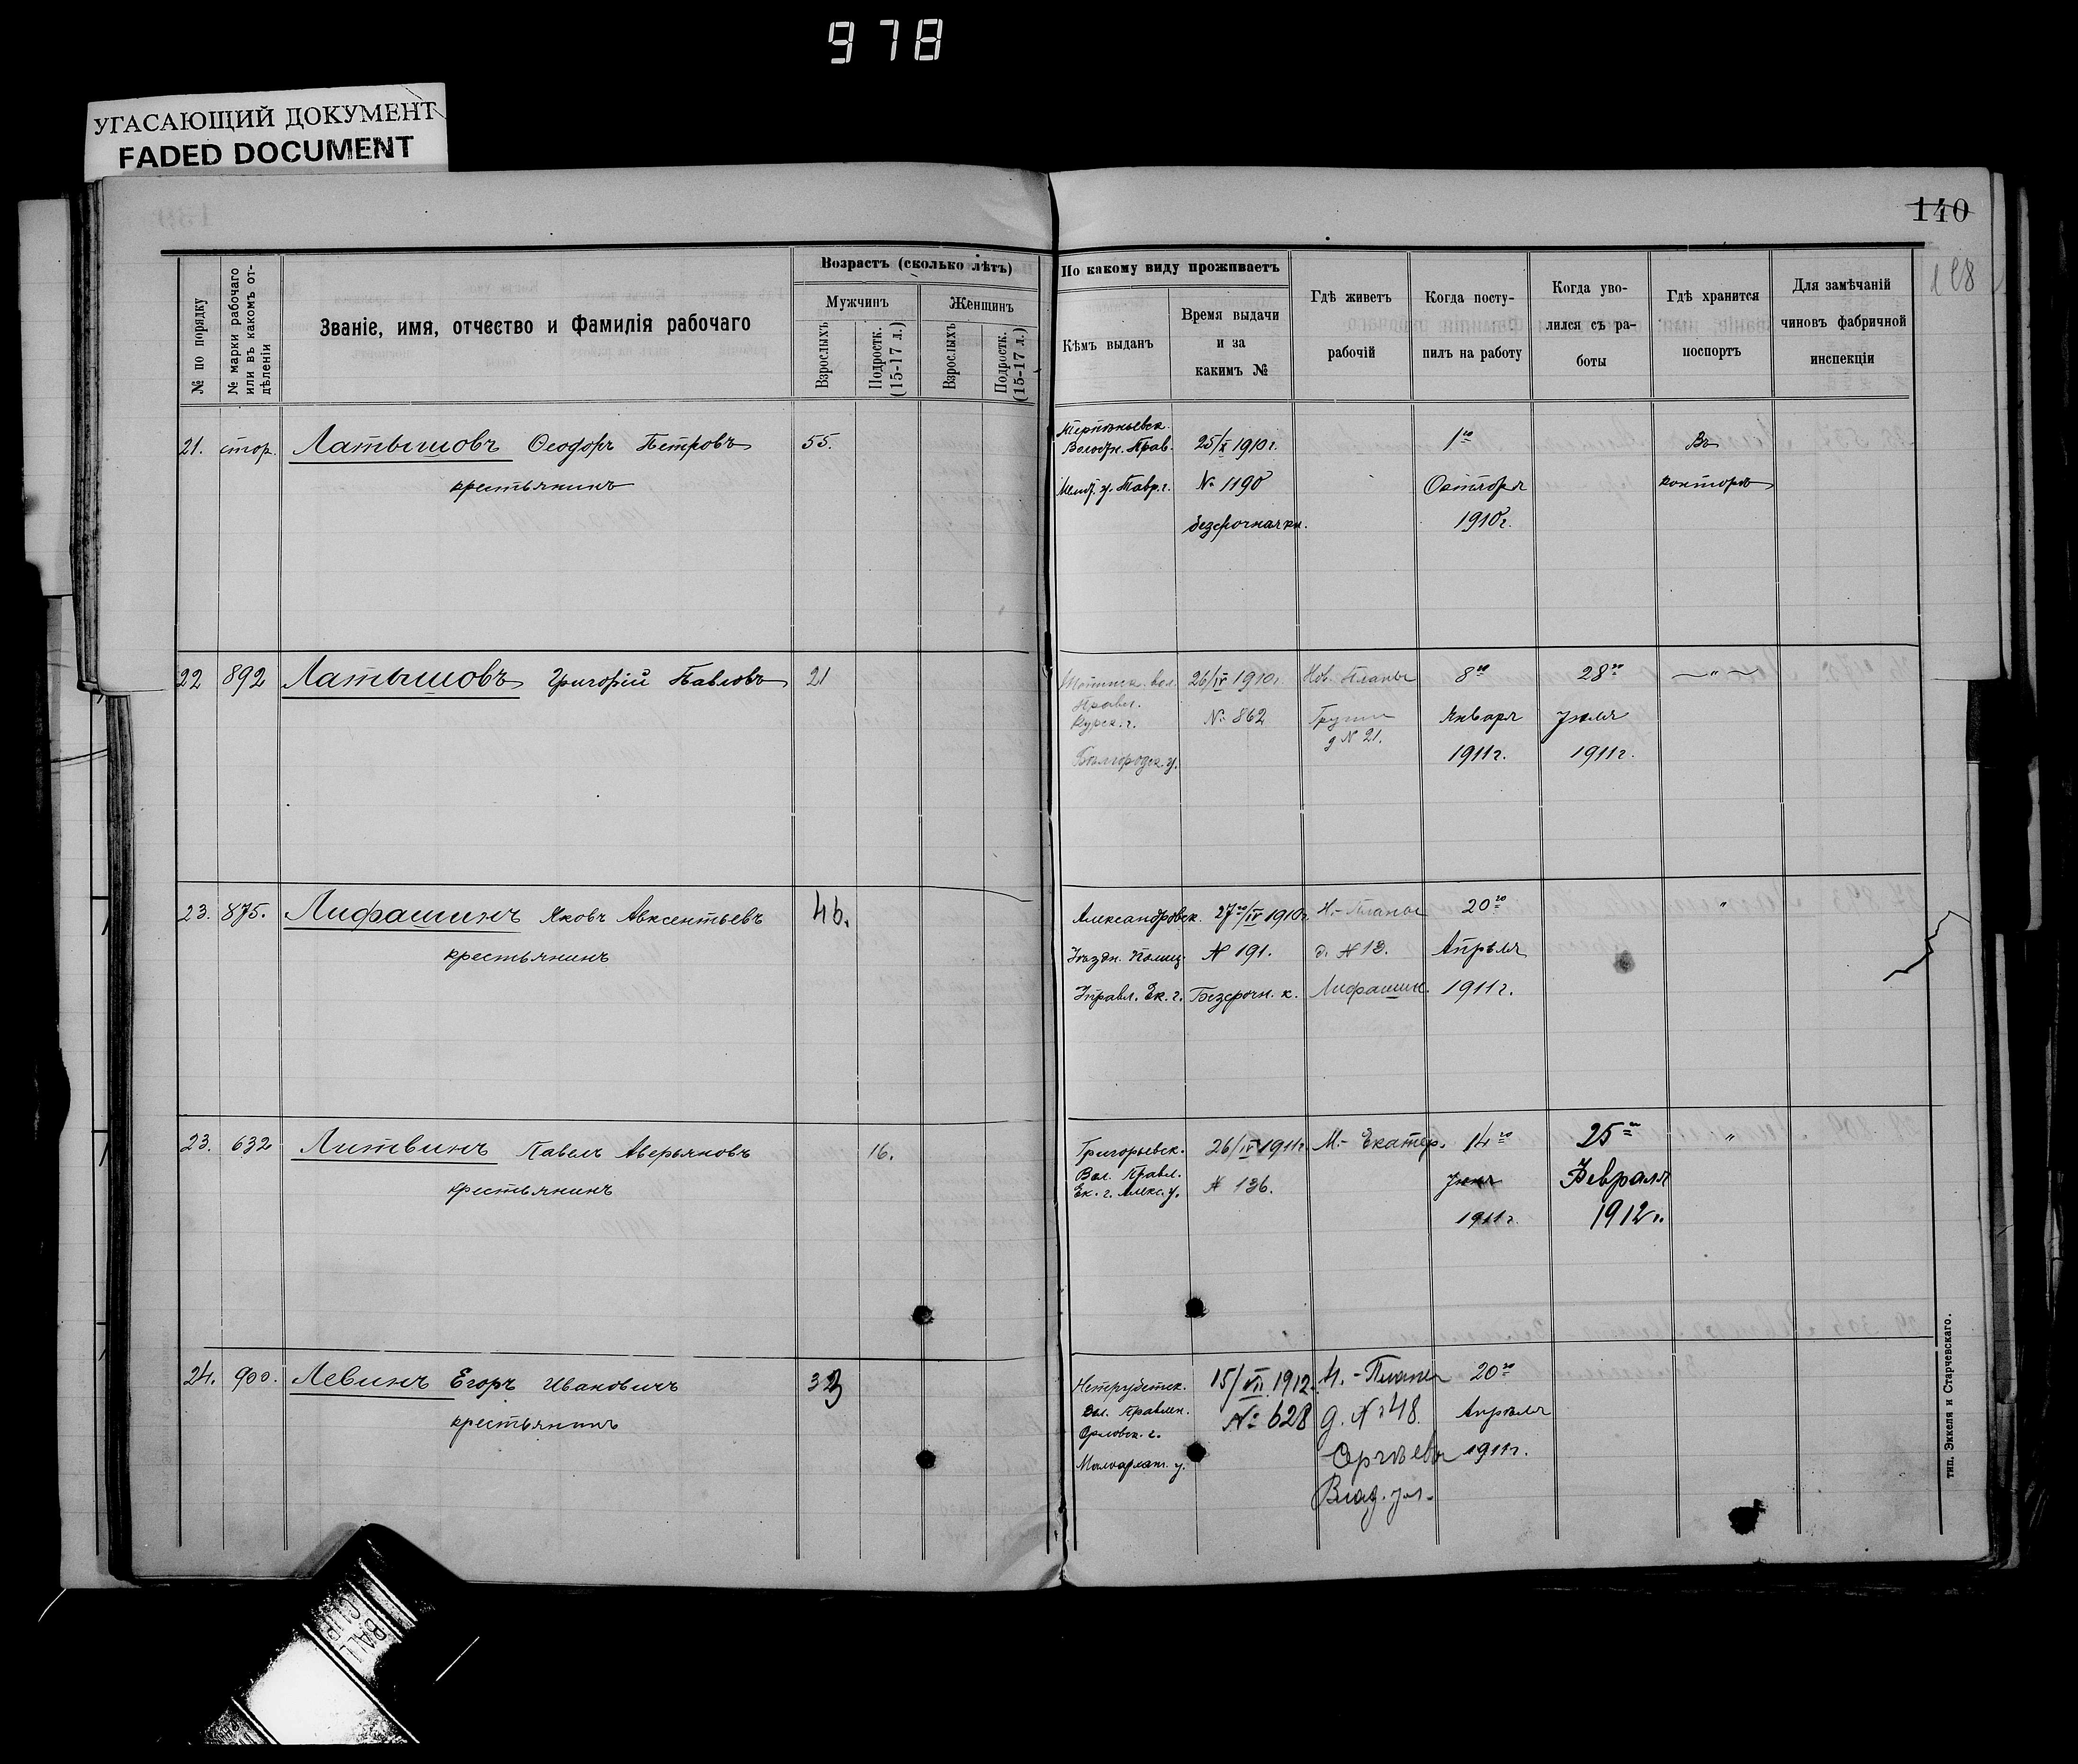 978
УГАСАЮЩИЙ ДОКУМЕНТ
FADED DOCUMENT
140
№ по порядку
№ марки рабочаго или въ какомъ отдѣленіи
Званіе, имя, отчество и фамилія рабочаго
Возрастъ (сколько лѣтъ)
Мужчинъ
Женщинъ
Взрослыхъ
Подростк. (15-17 л.)
Взрослыхъ
Подростк. (15-17 л.)
По какому виду проживаетъ
Кѣмъ выданъ
Время выдачи
и за
какимъ №
Гдѣ живетъ
рабочій
Когда посту-
пилъ на работу
Когда уво-
лился съ ра-
боты
Гдѣ хранится
поспортъ
Для замѣчаній
чиновъ фабричной
инспекціи
21. стор. Латышовъ Ѳеодоръ Петровъ 55.
крестьянинъ
Волостн. Прав. 25/X 1910 г. 1го Въ
Мелит. у. Тавр. г. № 1190 Октября конторѣ
безсрочная кн. 1910 г.
22 892 Латышовъ Григорій Павловъ 21
вол. 26/IV 1910 г. Нов. Планы 8го 28го — " —
Правл.
Курск. г. № 862 Января Іюля
д № 21.
Бѣлгородск. у. 1911 г. 1911 г.
23. 875. Лифашинъ Яковъ Авксентьевъ 46.
крестьянинъ
Александровск. 27го/IV 1910 г. Н.-Планы 20го "
Уѣздн. Полиц. № 191. д. № 13. Апрѣля
Управл. Ек. г. Безсрочн. к. Лифашин. 1911 г.
23. 632 Литвинъ Павелъ Аверьяновъ 16.
крестьянинъ
Григорьевск. 26/IV 1911 г. М.- Екатер. 14го 25го "
Вол. Правл. Февраля
Ек. г. Алекс. у. № 136. 1912 г.
1911 г.
24. 900. Левинъ Егоръ Ивановичъ 33
крестьянинъ
15/VII 1912. Н.-Планы 20го
Вол. Правлен. № 628 д. № 48 Апрѣля
Орловск. г.
Малоархан. у. 1911 г.
Влад. ул.
тип. Эккеля и Старчевскаго.
BALL
CLIP